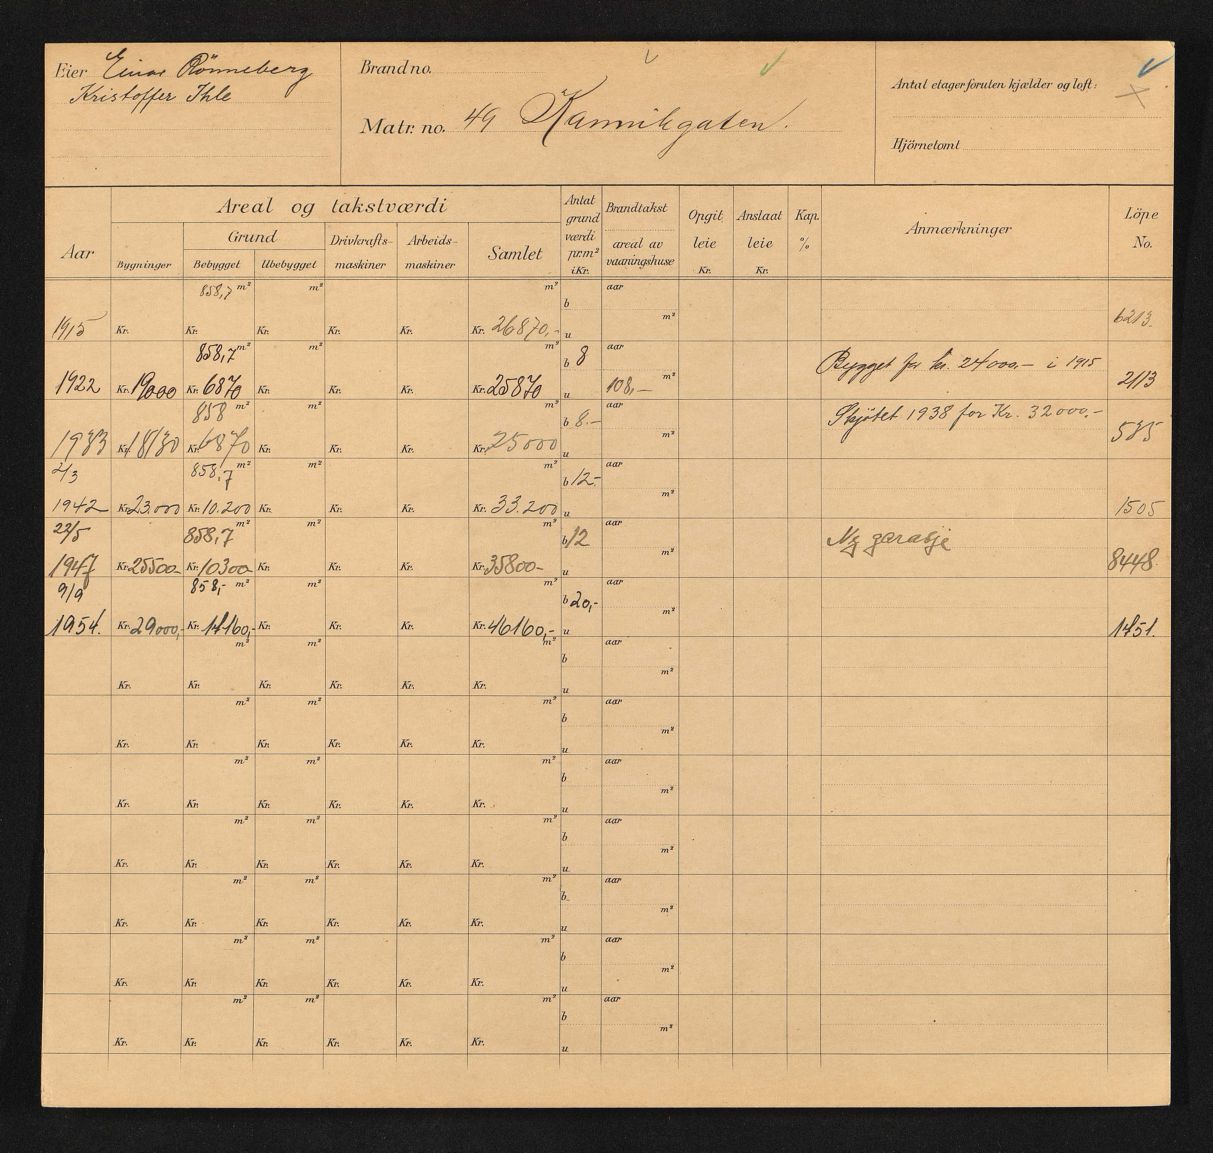 Eier Einar Rönneberg
Kristoffer Ihle
Brand no.
Matr. no. 49 Kannikgaten.
Antal etager foruten kjælder og loft:
Hjörnetomt
Aar
Areal og takstværdi
Bygninger
Grund
Bebygget
Ubebygget
Drivkrafts-
maskiner
Arbeids-
maskiner
Samlet
Antat
grund
værdi
pr.m²
i Kr.
Brandtakst
areal av
vaaningshuse
Opgit
leie
Kr.
Anslaat
leie
Kr.
Kap.
%
Anmærkninger
Löpe
No.
858,7 m² m² m² b aar
m²
1915 Kr. Kr. Kr. Kr. Kr. Kr. 26870,- u 6213.
858,7 m² m² m² b 8 aar
Bygget for kr. 24000.- i 1915
m²
1922 Kr. 19000 Kr. 6870 Kr. Kr. Kr. Kr. 25870 u 108,- 2113
858 m² m² m² b 8.- aar
Skjøtet 1938 for Kr. 32000,-
m²
1933 Kr. 18130 Kr. 6870 Kr. Kr. Kr. Kr. 25000 u 535
2/3 858,7 m² m² m² b 12.- aar
m²
1942 Kr. 23.000 Kr. 10.200 Kr. Kr. Kr. Kr. 33.200 u 1505
22/5 858,7 m² m² m² b 12 aar
Ny garasje
m²
1947 Kr. 25500- Kr. 10300- Kr. Kr. Kr. Kr. 35800- u 8448.
9/9 858,- m² m² m² b 20,- aar
m²
1954. Kr. 29000,- Kr. 17160,- Kr. Kr. Kr. Kr. 46160,- u 1451.
m² m² m² b aar
m²
Kr. Kr. Kr. Kr. Kr. Kr. u
m² m² m² b aar
m²
Kr. Kr. Kr. Kr. Kr. Kr. u
m² m² m² b aar
m²
Kr. Kr. Kr. Kr. Kr. Kr. u
m² m² m² b aar
m²
Kr. Kr. Kr. Kr. Kr. Kr. u
m² m² m² b aar
m²
Kr. Kr. Kr. Kr. Kr. Kr. u
m² m² m² b aar
m²
Kr. Kr. Kr. Kr. Kr. Kr. u
m² m² m² b aar
m²
Kr. Kr. Kr. Kr. Kr. Kr. u